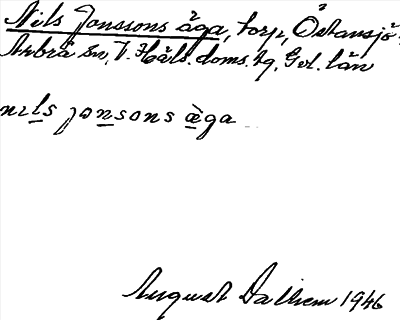 Nils Jonssons åga, torp, Östansjö
Arbrå sn, V. Häls. doms. tg, Gvl. län
nils jonsons äga
August Dalhem 1946